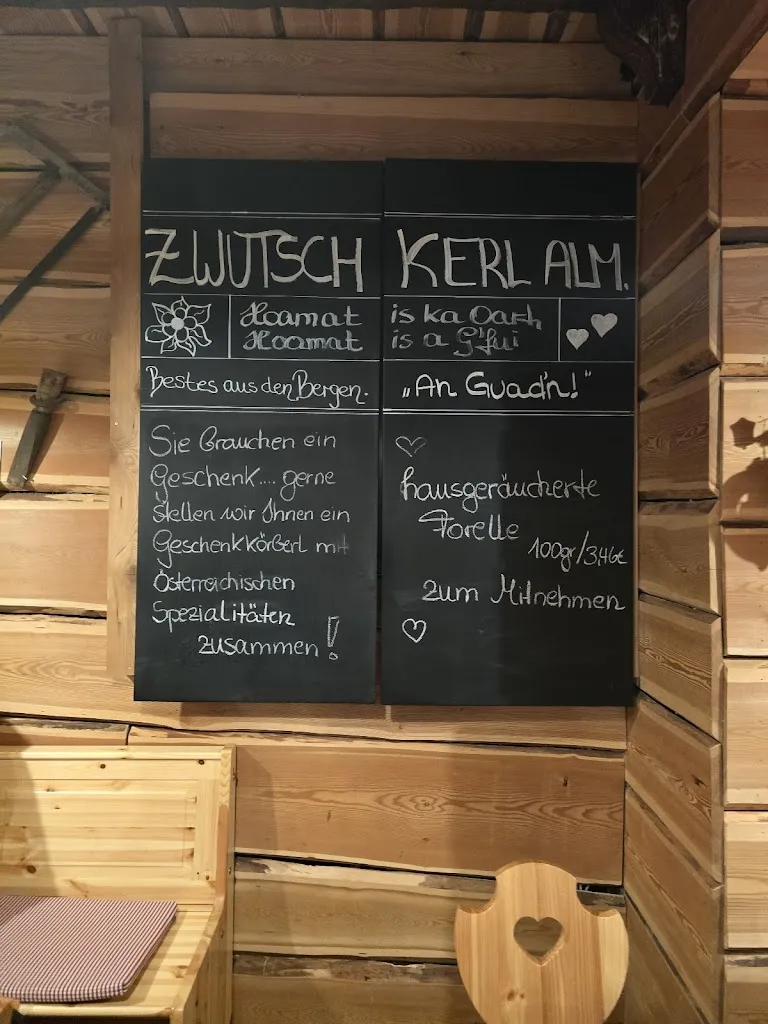 ZWUTSCHKERL ALM.
Hoamat is ka Oart
Hoamat is a G'fui
Bestes aus den Bergen.
„An Guad'n!"
Sie brauchen ein
Geschenk.... gerne
stellen wir Ihnen ein
Geschenkkörberl mit
Österreichischen
Spezialitäten
zusammen!
hausgeräucherte
Forelle
100gr/3,46€
zum Mitnehmen